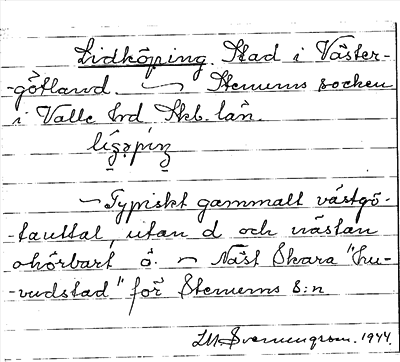 Lidköping. Stad i Väster-
-götland. — Stenums socken
i Valle hrd Skb. län.
— Typiskt gammalt västgö-
-tauttal, utan d och nästan
ohörbart ö. — Näst Skara "hu-
-vudstad" för Stenums s:n
1944.